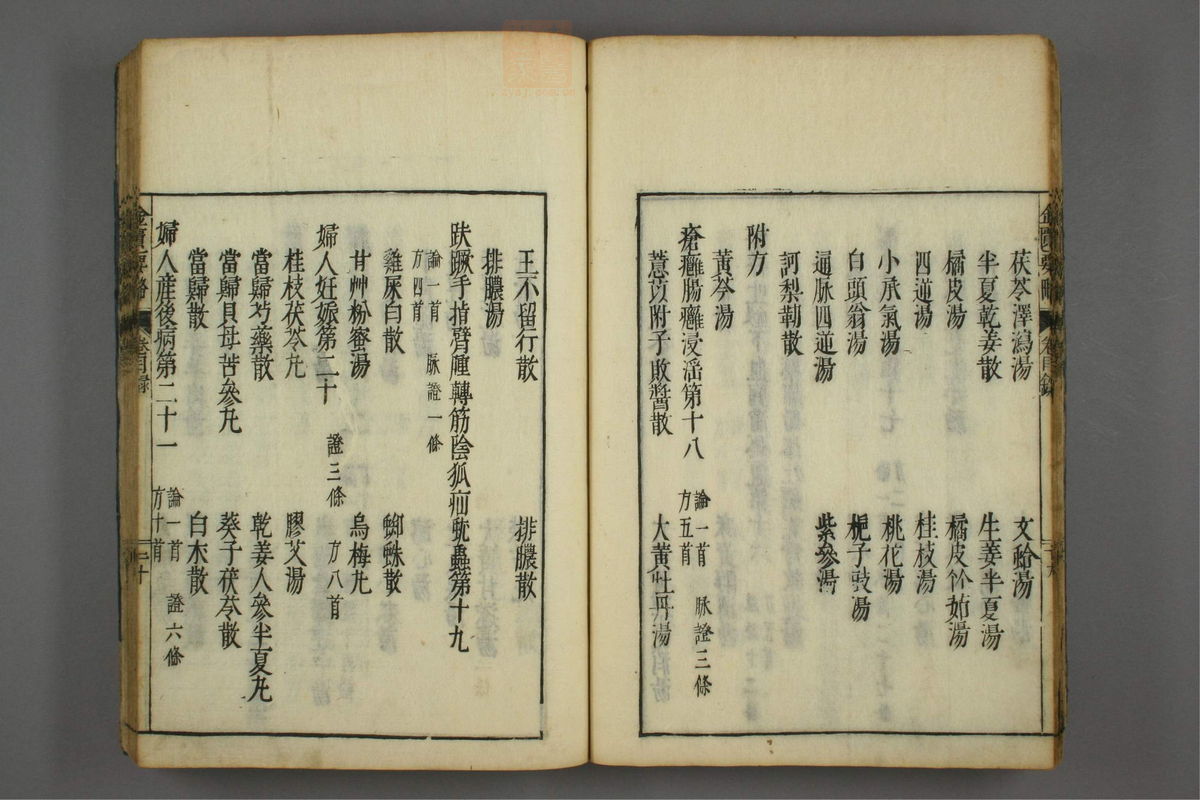 茯苓澤瀉湯 文蛤湯
半夏乾姜散 生姜半夏湯
橘皮湯 橘皮竹茹湯
四逆湯 桂枝湯
小承氣湯 桃花湯
白頭翁湯 梔子豉湯
通脉四逆湯 紫參湯
訶梨勒散
附方
黃芩湯
瘡癰腸癰浸淫第十八 論一首 脉證三條 方五首
薏苡附子敗醬散 大黃牡丹湯
王不留行散 排膿散
排膿湯
趺蹶手指臂腫轉筋陰狐疝蚘蟲第十九
論一首 脉證一條
方四首
雞屎白散 蜘蛛散
甘艸粉蜜湯 烏梅丸
婦人妊娠第二十 證三條 方八首
桂枝茯苓丸 膠艾湯
當歸芍藥散 乾姜人參半夏丸
當歸貝母苦參丸 葵子茯苓散
當歸散 白木散
婦人產後病第二十一 論一首 證六條 方十首
金匱要略 卷目錄 二十